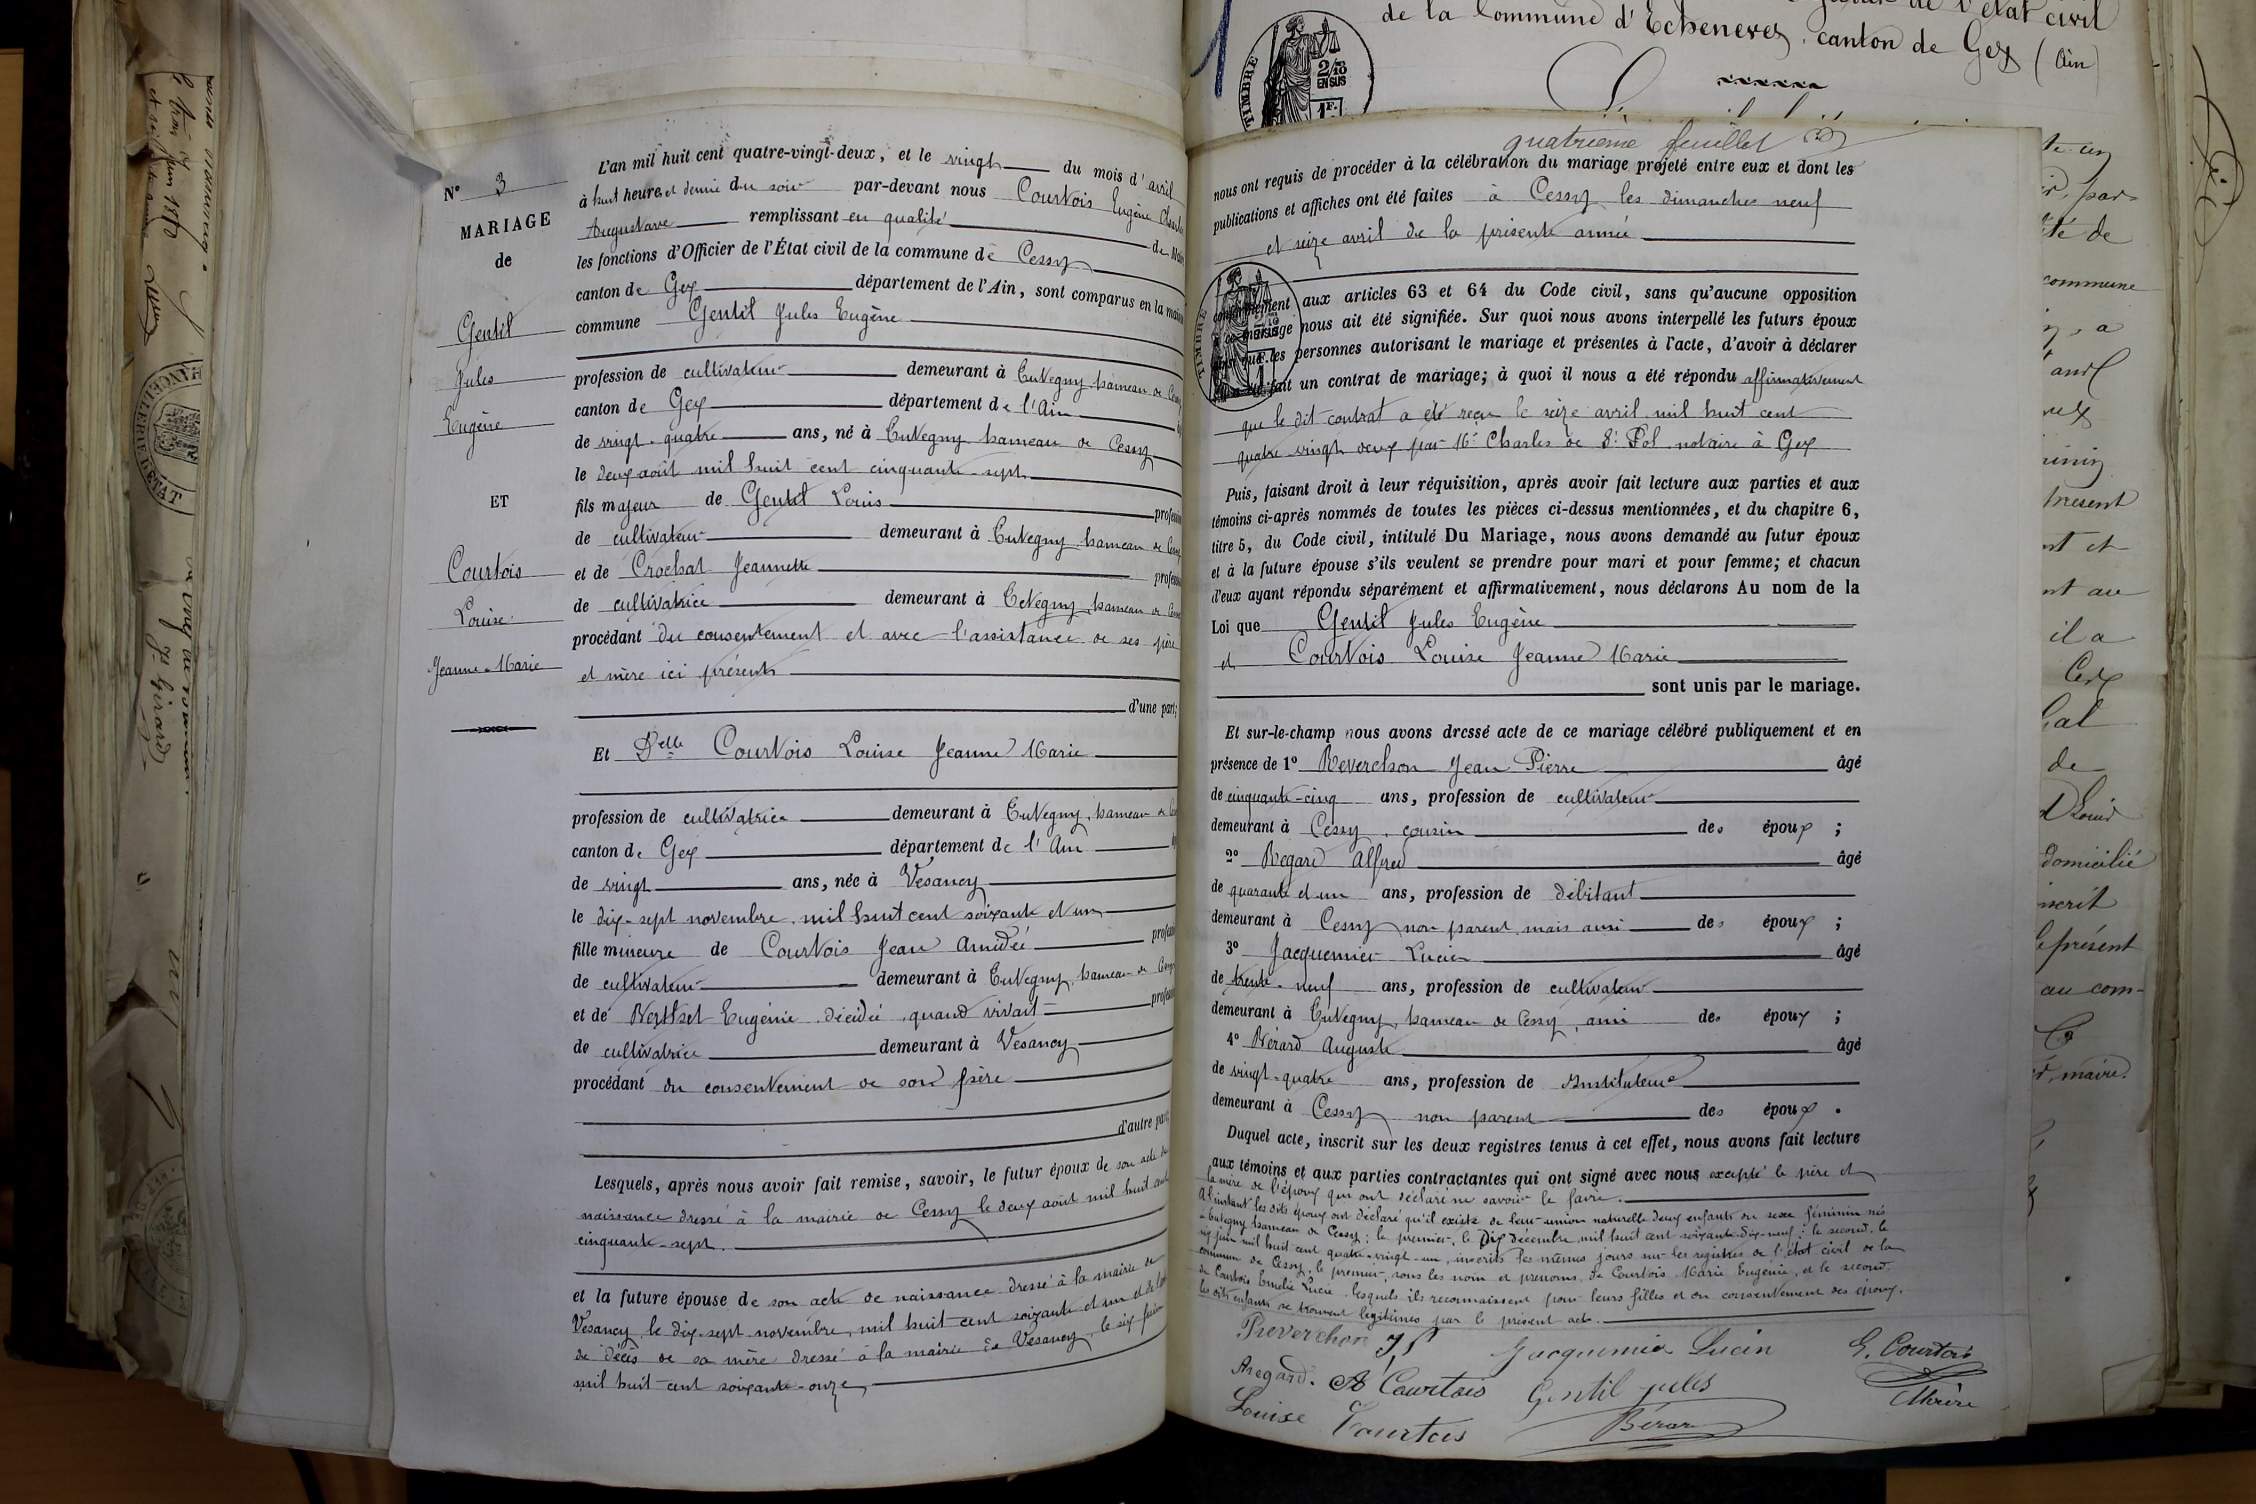 N° 3
MARIAGE
de
Gentil
Jules
Eugène
ET
Courtois
Louise
Jeanne-Marie
L'an mil huit cent quatre-vingt-deux, et le vingt du mois d'avril
à huit heures et demie du soir par-devant nous Courtois Eugène Charles
Auguste remplissant en qualité de Maire
les fonctions d'Officier de l'État civil de la commune de Cessy
canton de Gex département de l'Ain, sont comparus en la maison
commune Gentil Jules Eugène
profession de cultivateur demeurant à Tutegny hameau de Cessy
canton de Gex département de l'Ain
de vingt-quatre ans, né à Tutegny hameau de Cessy
le deux août mil huit cent cinquante-sept
fils majeur de Gentil Louis profession
de cultivateur demeurant à Tutegny hameau de Cessy
et de Crochat Jeannette profession
de cultivatrice demeurant à Tutegny hameau de Cessy
procédant du consentement et avec l'assistance de ses père
et mère ici présents
d'une part;
Et Delle Courtois Louise Jeanne Marie
profession de cultivatrice demeurant à Tutegny, hameau de Cessy
canton de Gex département de l'Ain
de vingt ans, née à Vesancy
le dix-sept novembre mil huit cent soixante et un
fille mineure de Courtois Jean Amédée profession
de cultivateur demeurant à Tutegny, hameau de Cessy
et de Berthet Eugénie décédée, quand vivait profession
de cultivatrice demeurant à Vesancy
procédant du consentement de son père
d'autre part;
Lesquels, après nous avoir fait remise, savoir, le futur époux de son acte de
naissance dressé à la mairie de Cessy le deux août mil huit cent
cinquante-sept.
et la future épouse de son acte de naissance dressé à la mairie de
Vesancy, le dix-sept novembre, mil huit cent soixante et un et de l'acte
de décès de sa mère dressé à la mairie de Vesancy, le six juin
mil huit cent soixante-onze
quatrième feuillet
nous ont requis de procéder à la célébration du mariage projeté entre eux et dont les
publications et affiches ont été faites à Cessy les dimanches neuf
et seize avril de la présente année
TIMBRE
conformément aux articles 63 et 64 du Code civil, sans qu'aucune opposition
à ce mariage nous ait été signifiée. Sur quoi nous avons interpellé les futurs époux
ainsi que les personnes autorisant le mariage et présentes à l'acte, d'avoir à déclarer
s'il a été fait un contrat de mariage; à quoi il nous a été répondu affirmativement
que le dit contrat a été reçu le seize avril mil huit cent
quatre vingt deux par Me Charles de St Pol notaire à Gex
Puis, faisant droit à leur réquisition, après avoir fait lecture aux parties et aux
témoins ci-après nommés de toutes les pièces ci-dessus mentionnées, et du chapitre 6,
titre 5, du Code civil, intitulé Du Mariage, nous avons demandé au futur époux
et à la future épouse s'ils veulent se prendre pour mari et pour femme; et chacun
d'eux ayant répondu séparément et affirmativement, nous déclarons Au nom de la
Loi que Gentil Jules Eugène
et Courtois Louise Jeanne Marie
sont unis par le mariage.
Et sur-le-champ nous avons dressé acte de ce mariage célébré publiquement et en
présence de 1° Reverchon Jean Pierre âgé
de cinquante-cinq ans, profession de cultivateur
demeurant à Cessy, cousin des époux ;
2° Regard Alfred âgé
de quarante et un ans, profession de débitant
demeurant à Cessy non parent, mais ami des époux ;
3° Jacquemier Lucien âgé
de trente-neuf ans, profession de cultivateur
demeurant à Tutegny, hameau de Cessy, ami des époux ;
4° Bérard Auguste âgé
de vingt-quatre ans, profession de Instituteur
demeurant à Cessy non parent des époux .
Duquel acte, inscrit sur les deux registres tenus à cet effet, nous avons fait lecture
aux témoins et aux parties contractantes qui ont signé avec nous excepté le père et
la mère de l'époux qui ont déclaré ne savoir le faire.
A l'instant les dits époux ont déclaré qu'il existe de leur union naturelle deux enfants du sexe féminin nés
à Tutegny hameau de Cessy; le premier, le dix décembre mil huit cent soixante-dix-neuf; le second, le
six juin mil huit cent quatre-vingt-un, inscrits les mêmes jours sur les registres de l'état civil de la
commune de Cessy, le premier, sous les nom et prénoms de Courtois Marie Eugénie, et le second,
de Courtois Emélie Lucie, lesquels ils reconnaissent pour leurs filles et du consentement des époux,
les dits enfants se trouvent légitimés par le présent acte.
Reverchon J P Jacquemier Lucien E. Courtois
A regard. A Courtois Gentil jules Maire
Louise Courtois Bérard
de la Commune d'Echenevex, canton de Gex (Ain)
TIMBRE
2/10
EN SUS
1 F.
commune
présent
il a
de
domicilié
inscrit
le présent
au com-
maire.